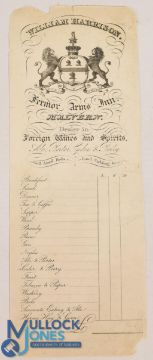 WILLIAM HARRISON,
Fermor Arms Inn
MALVERN.
Dealer in
Foreign Wines and Spirits,
Ale, Porter, Cyder & Perry
Breakfast
Lunch
Dinner
Tea & Coffee
Supper
Wine
Brandy
Rum
Gin
Negus
Ale & Porter
Cyder & Perry
Fruit
Tobacco & Paper
Washing
Servants Eating & Ale
MULLOCK
JONES